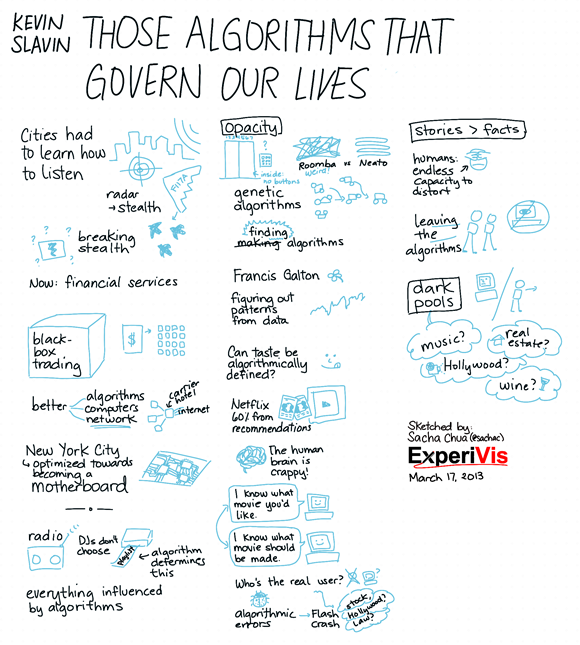 KEVIN
SLAVIN
THOSE ALGORITHMS THAT
GOVERN OUR LIVES
Cities had
to learn how
to listen
radar
→ stealth
breaking
stealth
Now: financial services
black-
box
trading
$
better
algorithms
computers
network
carrier
hotel
internet
New York City
↳ optimized towards
becoming a
motherboard
radio
DJs don't
choose
playlist
← algorithm
determines
this
everything influenced
by algorithms
opacity
inside:
no buttons
Roomba vs Neato
weird!
genetic
algorithms
finding
making algorithms
Francis Galton
figuring out
patterns
from data
Can taste be
algorithmically
defined?
Netflix
60% from
recommendations
The human
brain is
crappy!
I know what
movie you'd
like.
I know what
movie should
be made.
Who's the real user?
algorithmic
errors
→ Flash
Crash
stock,
Hollywood?
Law?
stories > facts
humans:
endless
capacity to
distort
leaving
the
algorithms
dark
pools
music?
real
estate?
Hollywood?
wine?
Sketched by:
Sacha Chua (@sachac)
ExperiVis
March 17, 2013